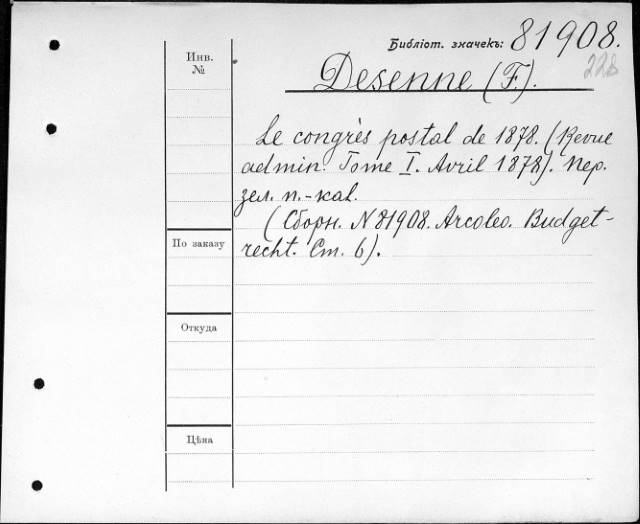 Библіот. значекъ: 81908.
228
Инв.
№
Desenne (F.).
Le congrès postal de 1878. (Revue
admin. Tome I. Avril 1878). Пер.
зел. п.-kal.
(Сборн. N 81908. Arcoleo. Budget-
recht. Ст. 6).
По заказу
Откуда
Цѣна